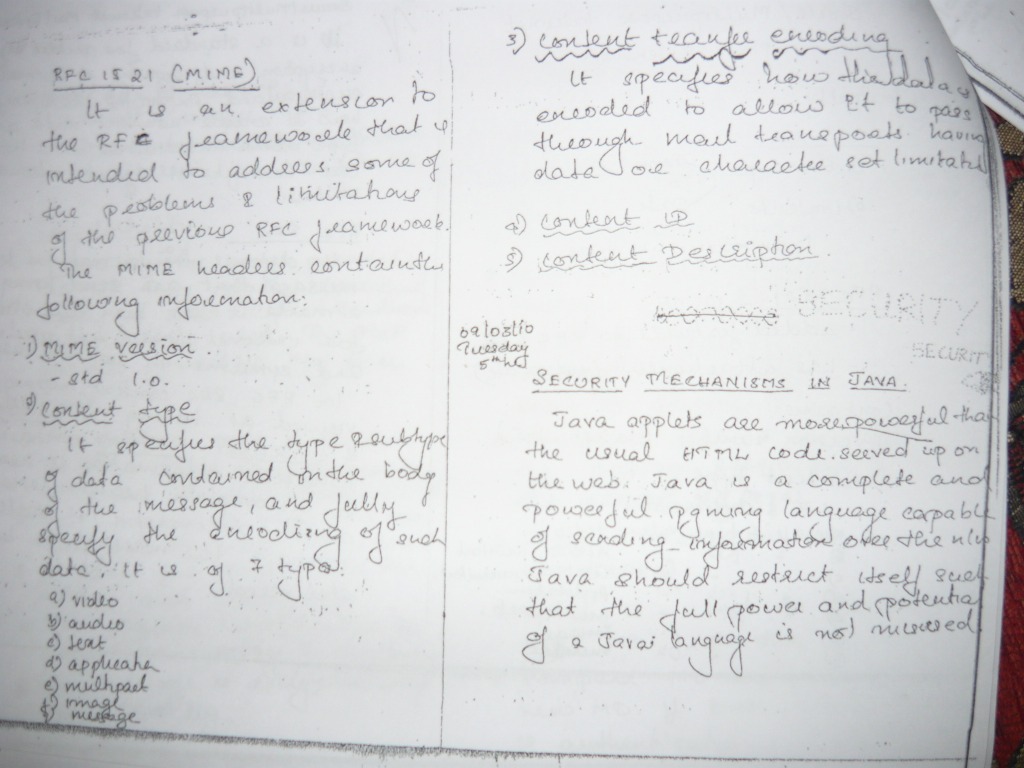 RFC 1521 (MIME)
It is an extension to
the RFC framework that is
intended to address some of
the problems & limitations
of the previous RFC framework.
The MIME headers contain the
following information:
1) MIME version
- std 1.0.
2) Content type
It specifies the type & subtype
of data contained in the body
of the message, and fully
specify the encoding of such
data. It is of 7 types.
a) video
b) audio
c) text
d) application
e) multipart
f) image
g) message
3) Content transfer encoding
It specifies how the data is
encoded to allow it to pass
through mail transports having
data or character set limitations
4) Content ID
5) Content Description
SECURITY
SECURITY
09/03/10
Tuesday
5th hr
SECURITY MECHANISMS IN JAVA.
Java applets are more powerful than
the usual HTML code served up on
the web. Java is a complete and
powerful pgming language capable
of sending information over the n/w
Java should restrict itself such
that the full power and potential
of a Java language is not misused